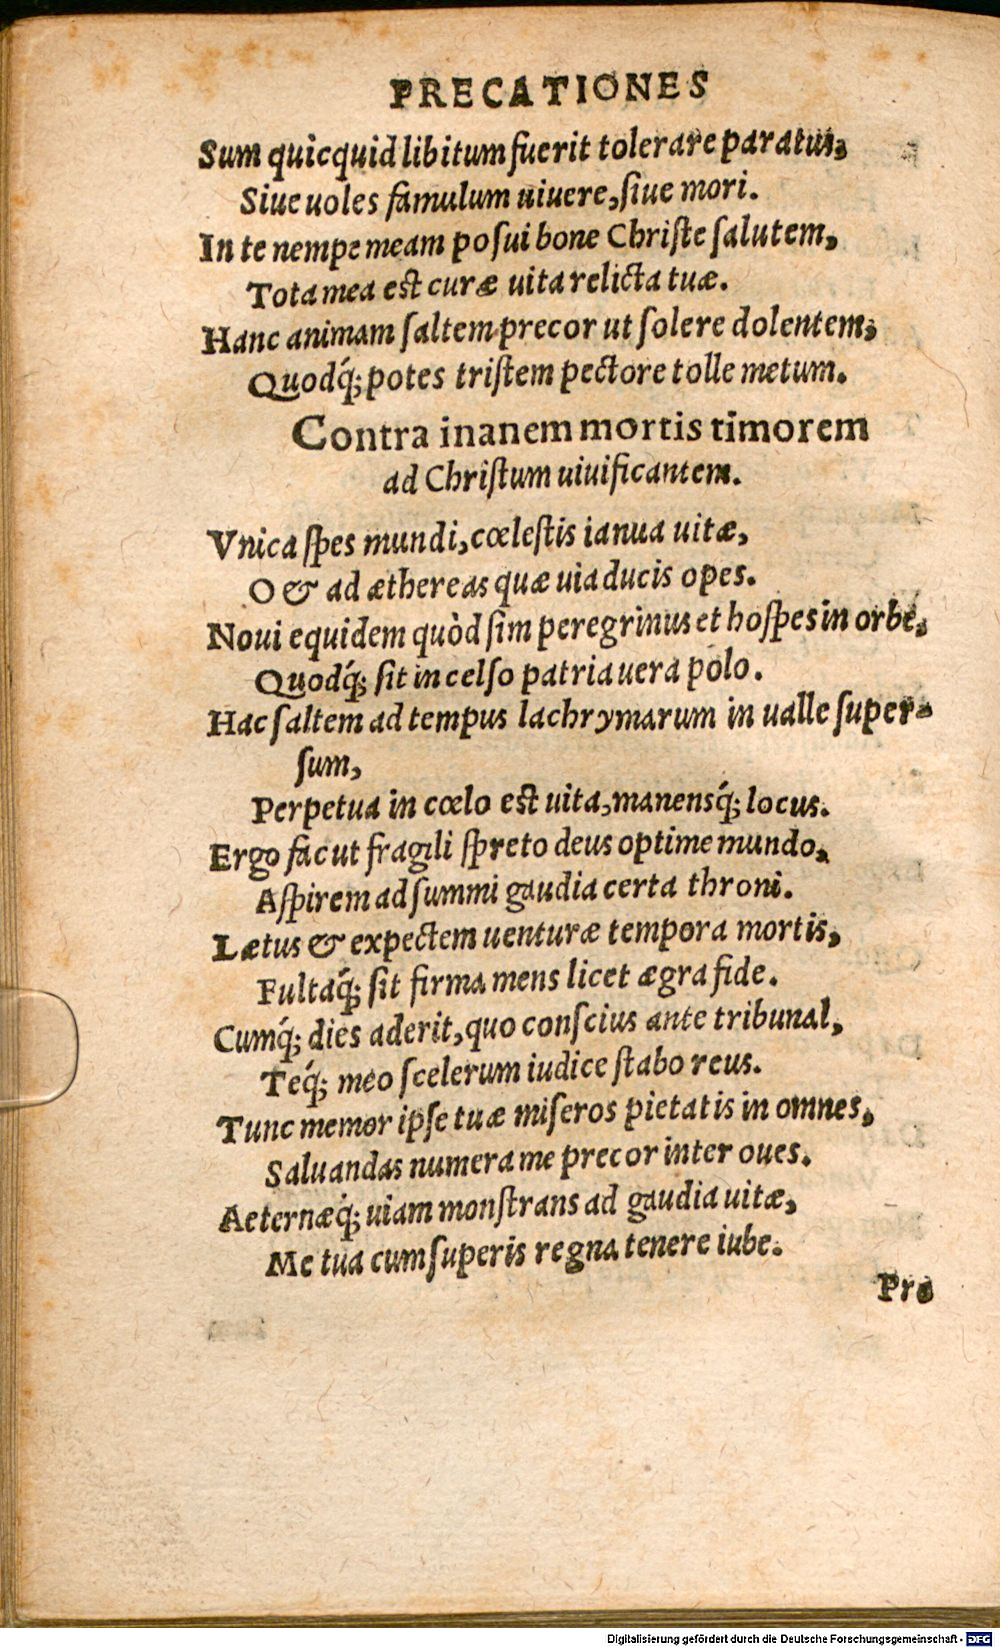 PRECATIONES
Sum quicquid libitum fuerit tolerare paratus,
Siue uoles famulum uiuere, ſiue mori.
In te nempe meam poſui bone Chriſte ſalutem,
Tota mea eſt curæ uita relicta tuæ.
Hanc animam ſaltem precor ut ſolere dolentem,
Quodq́; potes triſtem pectore tolle metum.
Contra inanem mortis timorem
ad Chriſtum uiuificantem.
Vnica ſpes mundi, cœleſtis ianua uitæ,
O & ad æthereas quæ uia ducis opes.
Noui equidem quòd ſim peregrinus et hoſpes in orbe,
Quodq́; sit in celſo patria uera polo.
Hac ſaltem ad tempus lachrymarum in ualle ſuper-
ſum,
Perpetua in cœlo eſt uita, manensq́; locus.
Ergo fac ut fragili ſpreto deus optime mundo,
Aſpirem ad ſummi gaudia certa throni.
Lætus & expectem uenturæ tempora mortis,
Fultaq́; ſit firma mens licet ægra fide.
Cumq́; dies aderit, quo conſcius ante tribunal,
Teq́; meo ſcelerum iudice ſtabo reus.
Tunc memor ipſe tuæ miſeros pietatis in omnes,
Saluandas numera me precor inter oues.
Aeternæq́; uiam monſtrans ad gaudia uitæ,
Me tua cum ſuperis regna tenere iube.
Pro
Digitalisierung gefördert durch die Deutsche Forschungsgemeinschaft - DFG